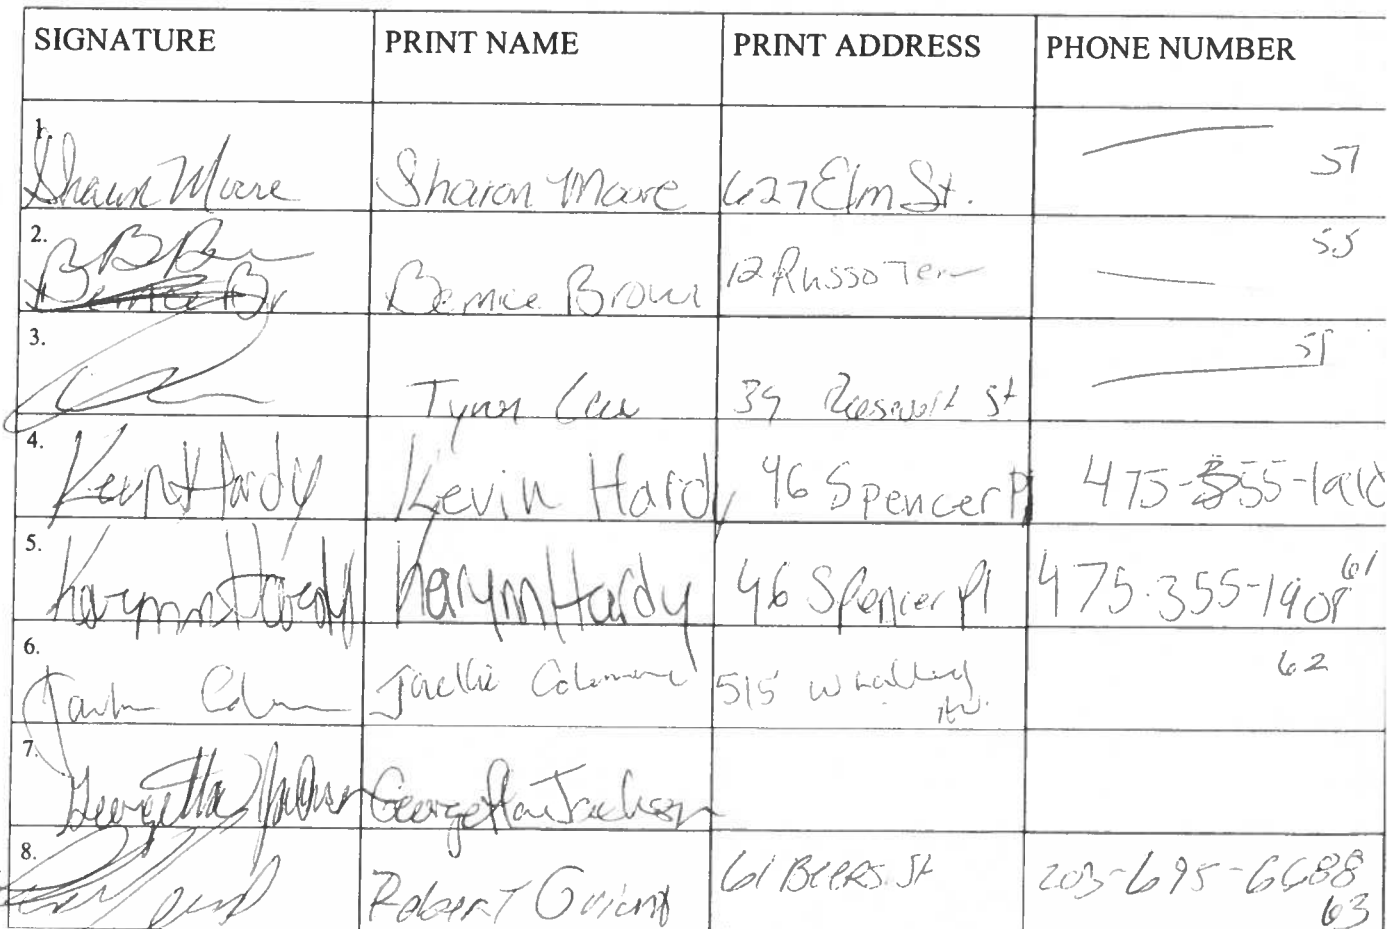 SIGNATURE PRINT NAME PRINT ADDRESS PHONE NUMBER
1.
Sharon Moore Sharon Moore 627 Elm St. 57
2.
Bernice Br Bernice Brown 12 Russo Terr 55
3.
Tyron 39 Roosevelt St 51
4.
Kevin Hardy Kevin Hardy 46 Spencer Pl 475-355-1910
5.
Karynn Hardy Karynn Hardy 46 Spencer Pl 475-355-1908 61
6.
Jackie Coleman 515 Whalley Av. 62
7.
Georgetta Jackson Georgetta Jackson
8.
Robert 61 Beers St 203-695-6688
63